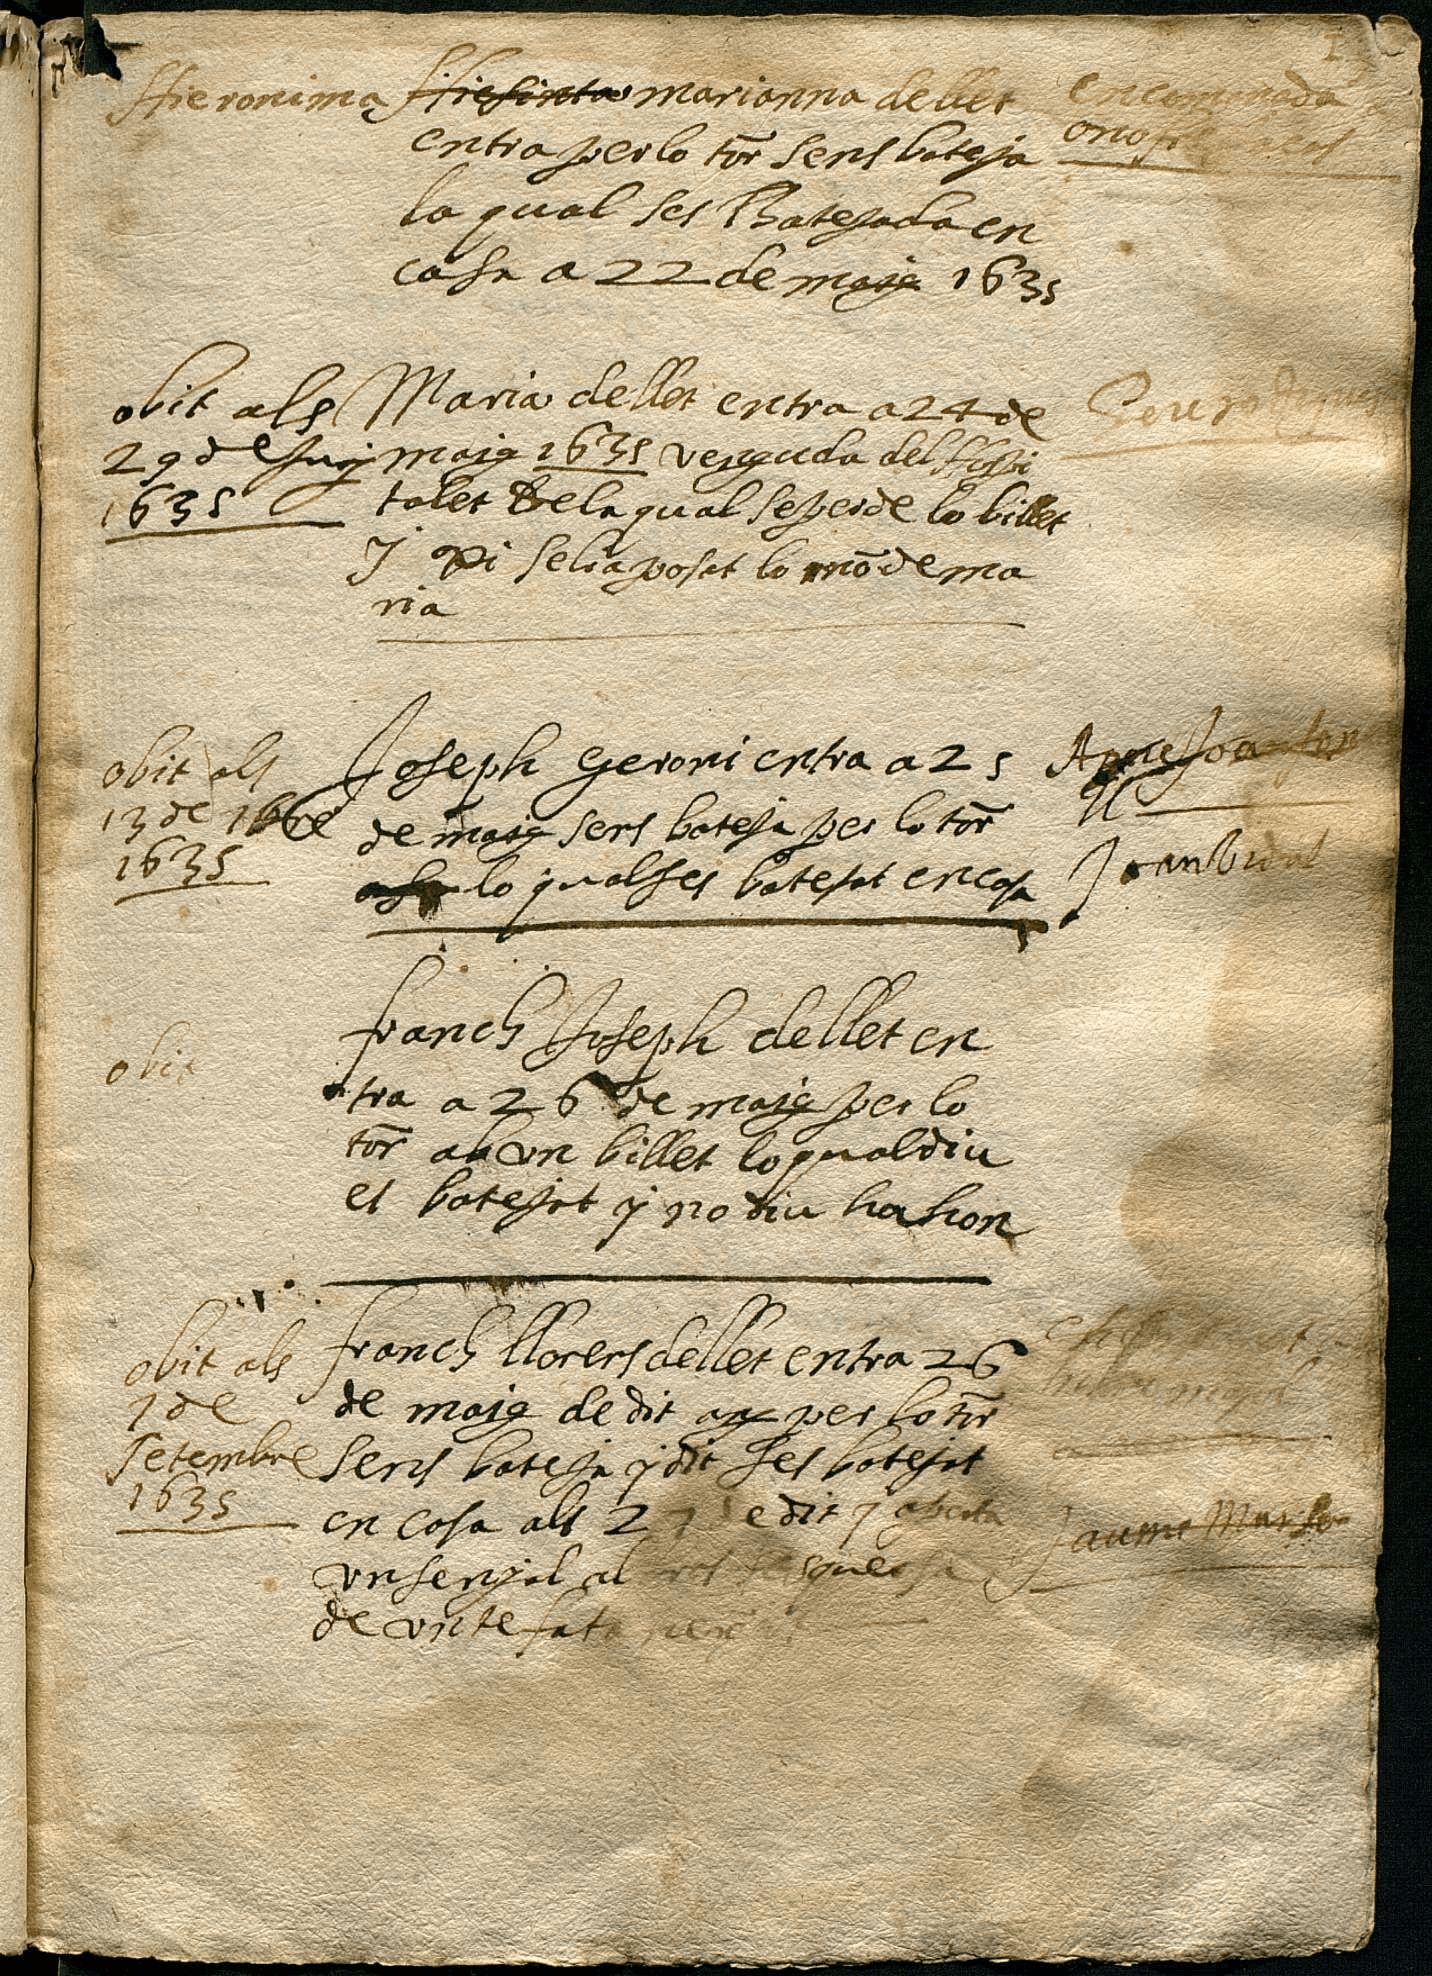 1
Hieronima Hiesinta marianna dellet
encomanada
entra per lo tōr sens bateja
onofr
la qual ses Batejada en
casa a 22 de maig 1635
obit als
29 de Juny
1635
Maria dellet entra a 24 de
maig 1635 venguda del Hospi
talet de la qual se perde lo billet
J axi se li a posat lo nō de ma
ria
obit als
13 de 7bre
1635
Joseph Geroni entra a 25
de maig sens bateja per lo tōr
lo qual ses batejat en casa
Joan Vidal
obit
franch Joseph dellet en
tra a 26 de maig per lo
tōr ab vn billet lo qual diu
es batejat y no diu ha hon
obit als
7 de
Setembre
1635
franch llorens dellet entra 26
de maig de dit ay per lo tōr
sens bateja y dit ses batejat
en casa als 27 de dit y aporta
vn senyal al
de vn te fata
Jaume